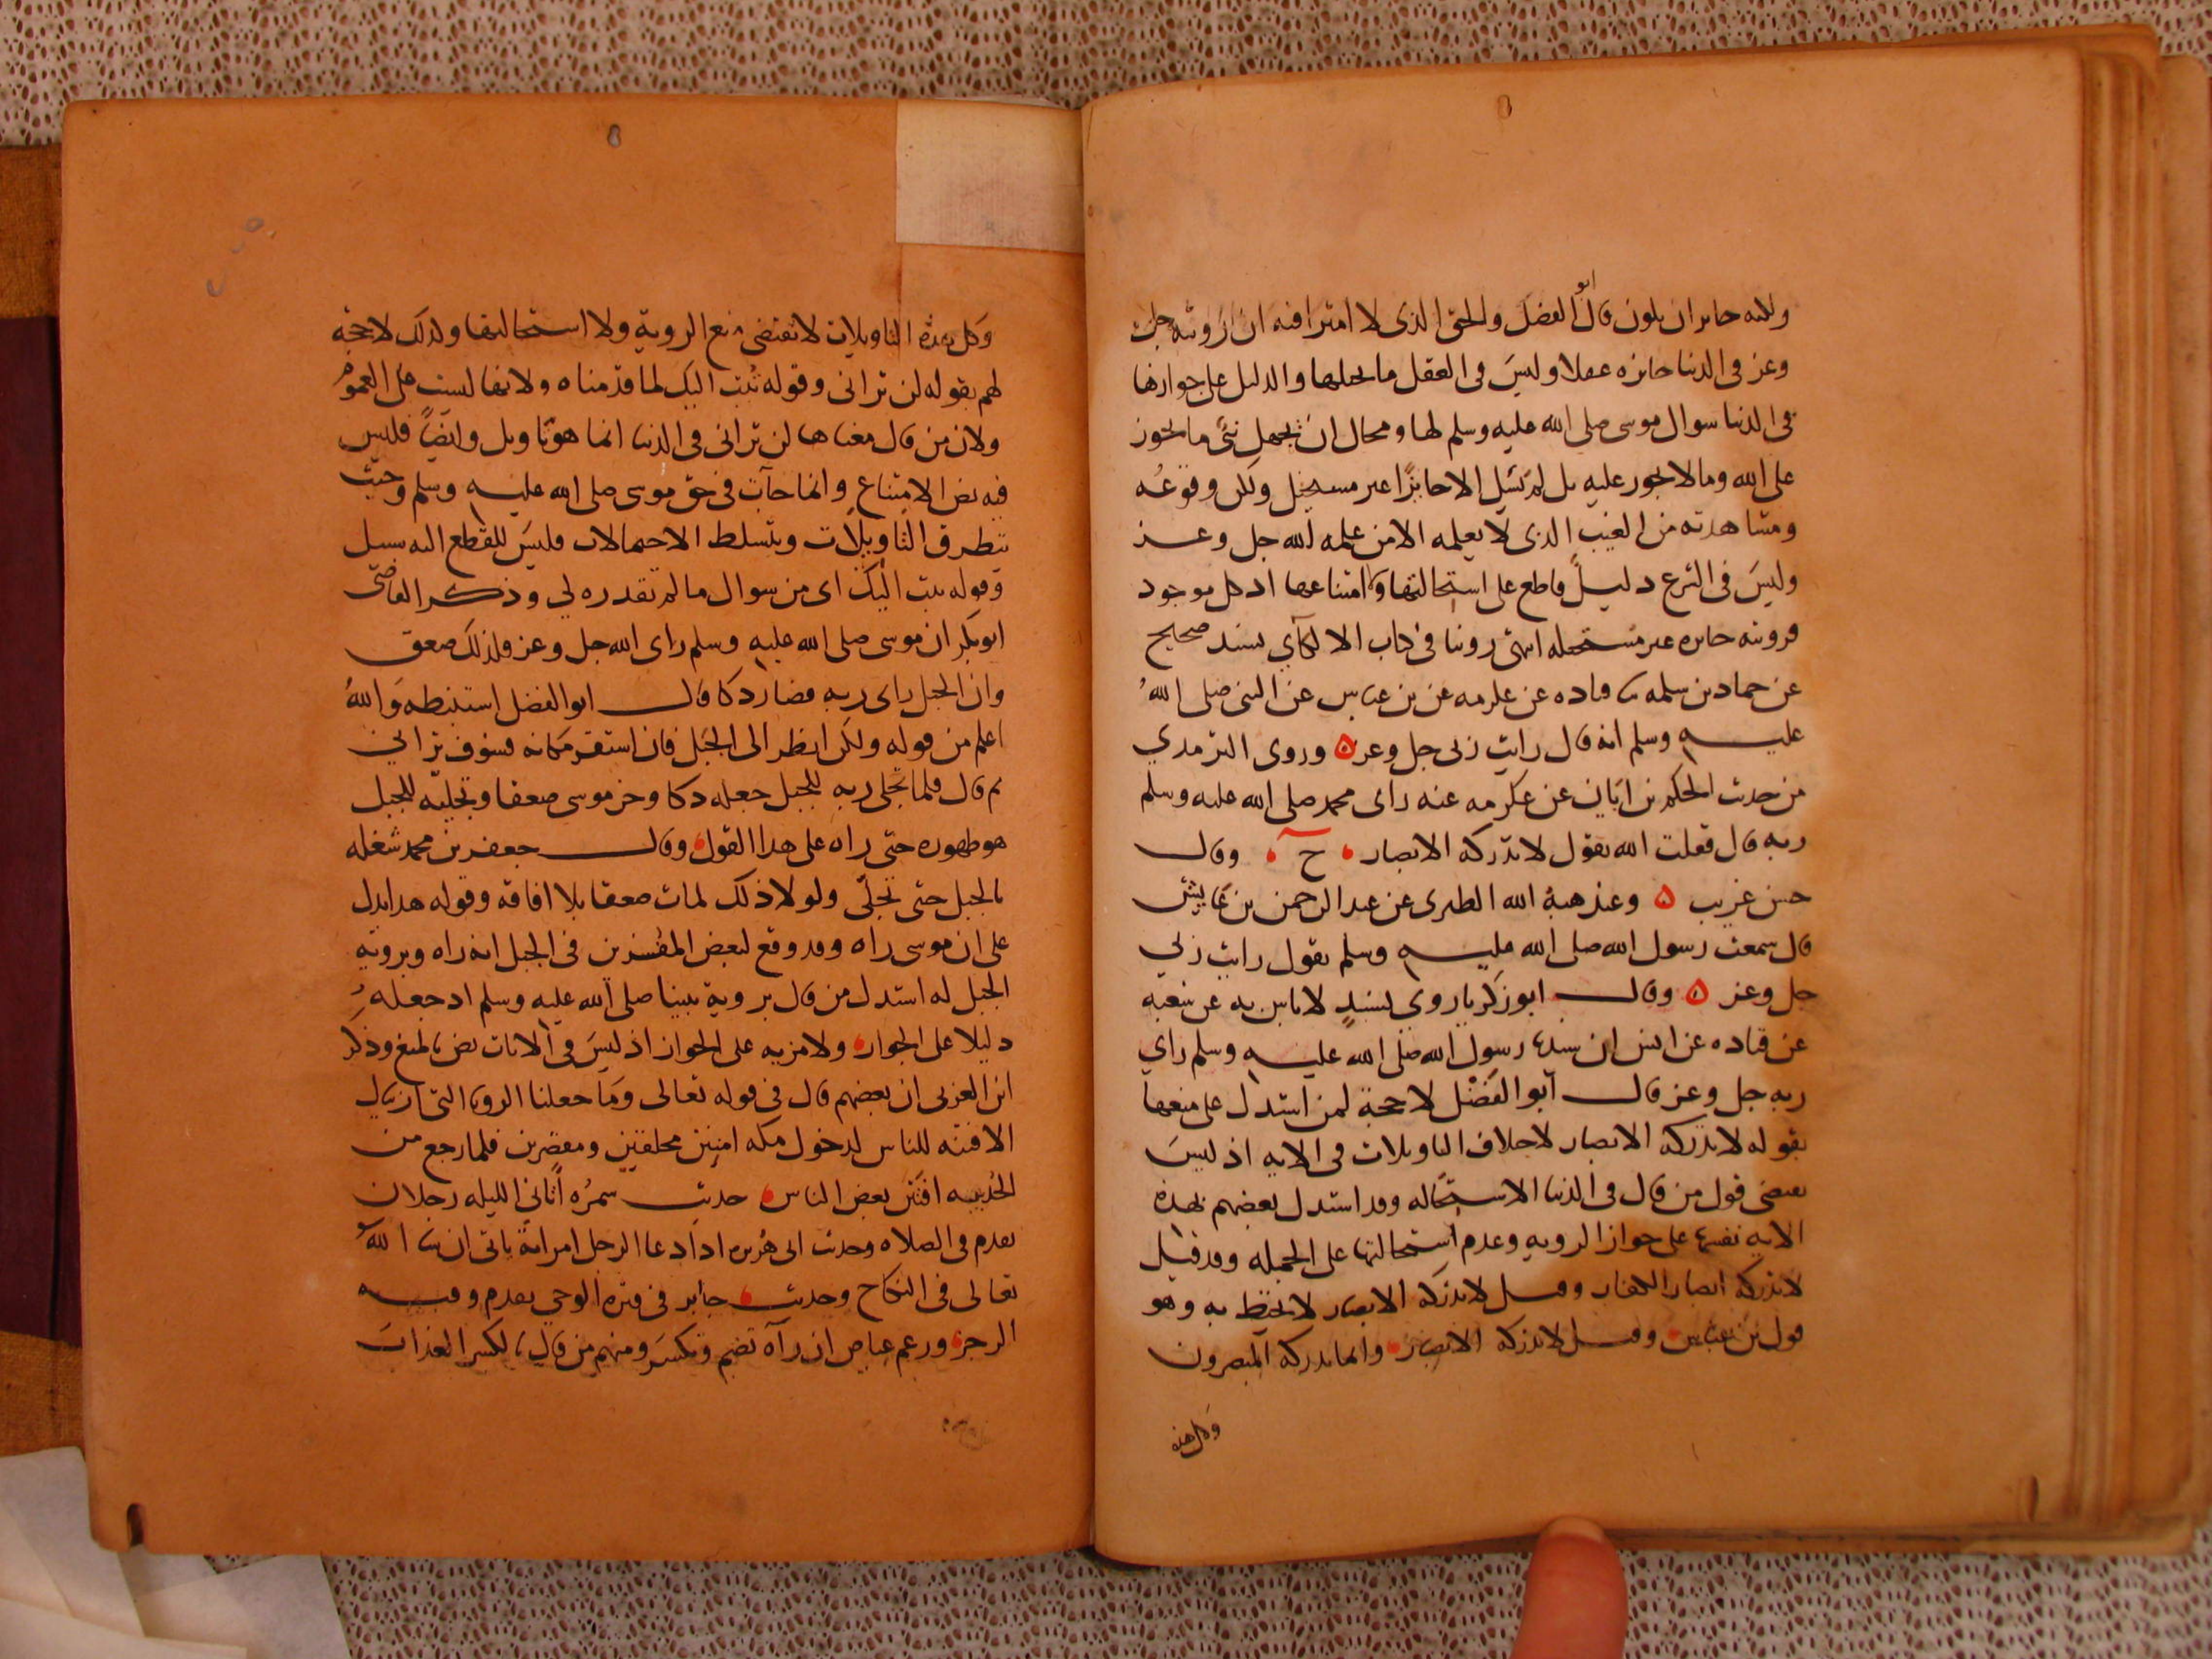 ولكنه جائز ان يكون قال ابو الفضل والحق الذى لا امترا فيه ان رؤيته جل
وعز فى الدنيا جائزه عقلا وليس فى العقل ما يحيلها والدليل على جوازها
فى الدنيا سوال موسى صلى الله عليه وسلم لها ومحال ان يجهل نبي ما يجوز
على الله وما لا يجوز عليه بل لم يسل الا جائزًا غير مستحيل ولكن وقوعُه
ومشاهدته من الغيب الذى لا يعلمه الا من علمه الله جل وعز
وليس فى الشرع دليلٌ قاطع على استحالتها ولا امتناعها اذ كل موجود
فرويته جائزه غير مستحيله انتهى روينا فى كتاب الالكآي بسند صحيح
عن حماد بن سلمه ثنا قتاده عن عكرمه عن بن عباس عن النبى صلى اللهُ
عليه وسلم انه قال رايت ربى جل وعز ۵ وروى الترمدي
من حديث الحكم بن ابَان عن عكرمه عنه راى محمد صلى الله عليه وسلم
ربه قال فقلت الله يقول لا تدركه الابصار ح وقال
حسن غريب ۵ وعند هبة الله الطبرى عن عبد الرحمن بن عايش
قال سمعت رسول الله صلى الله عليه وسلم يقول رايت ربي
جل وعز ۵ وقال ابو زكريا روى بسندٍ لا باس به عن شعبه
عن قتاده عن انس ان سيدنا رسول الله صلى الله عليه وسلم راي
ربه جل وعز قال ابو الفضل لا حجة لمن استدل على منعها
بقوله لا تدركه الابصار لاختلاف التاويلات فى الايه اذ ليسَ
يقتضى قول من قال فى الدنيا الاستحاله وقد استدل بعضهم بهذه
الايه نفسها على جواز الرويه وعدم استحالتها على الجمله وقد قيل
لا تدركه ابصار الكفار وقيل لا تدركه الابصار لا تحيط به وهو
قول بن عباس وقيل لا تدركه الابصار وانما يدركه المبصرون
وكل هذه
وكل هذه التاويلات لا تقتضى منع الروية ولا استحالتها ولذلك لا حجة
لهم بقوله لن ترانى وقوله تُبت اليك لما قدمناه ولانها ليست على العموم
ولان من قال معناها لن ترانى فى الدنيا انما هو تاويل وايضاً فليس
فيه نص الامتناع وانما جآت فى حق موسى صلى الله عليه وسلم وحيث
تتطرق التاويلات وتتسلط الاحتمالات فليس للقطع اليه سبيل
وقوله تبت اليك اى من سوال ما لم تقدره لي وذكر القاضى
ابو بكر ان موسى صلى الله عليه وسلم راى الله جل وعز فلذلك صعق
وان الجبل راى ربه فصار دكا قال ابو الفضل استنبطه واللهُ
اعلم من قوله ولكن انظر الى الجبل فان استقر مكانه فسوف ترانى
ثم قال فلما تجلى ربه للجبل جعله دكا وخر موسى صعقا وتجليه للجبل
هو ظهوره حتى راه على هدا القول وقال جعفر بن محمد شغله
بالجبل حتى تجلّى ولو لا ذلك لمات صعقا بلا افاقه وقوله هدا يدل
على ان موسى راه وقد وقع لبعض المفسرين فى الجبل انه راه وبرويه
الجبل له استدل من قال بروية نبينا صلى الله عليه وسلم اذ جعله
دليلا على الجواز ولا مزيه على الجواز اذ ليس فى الايات نص بالمنع وذكر
ابن العربى ان بعضهم قال فى قوله تعالى وما جعلنا الرويا التى اريناك
الا فتنه للناس لدخول مكه امنين محلقين ومقصرين فلما رجع من
الحُديبيه افتتن بعض الناس حديث سمرُه أتانى الليله رجلان
تقدم فى الصلاه وحديث ابى هُريره اذا دعا الرجل امراته ياتى ان شا اللهُ
تعالى فى النكاح وحديث جابر فى فتره الوحي تقدم وفيه
الرجز وزعم عياض ان رآه تضم وتكسر ومنهم من قال بالكسر العذاب